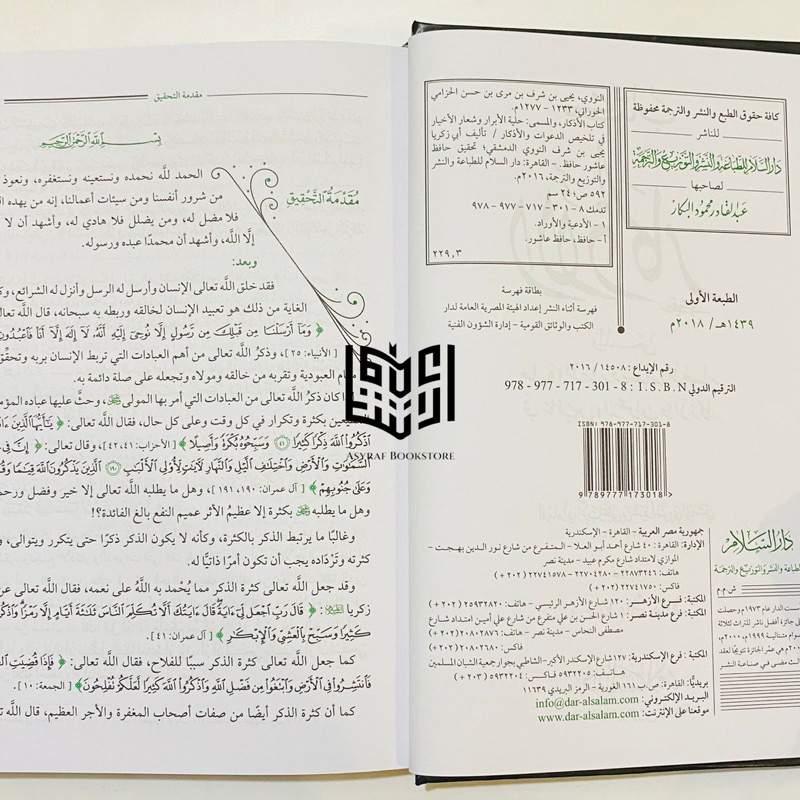 كافة حقوق الطبع والنشر والترجمة محفوظة
للناشر
دار السلام للطباعة والنشر والتوزيع والترجمة
لصاحبها
عبدالقادر محمود البكار
النووي، يحيى بن شرف بن مرى بن حسن الحزامي
الحوراني، ١٢٣٣ - ١٢٧٧م.
كتاب الأذكار، والمسمى: حلية الأبرار وشعار الأخيار
في تلخيص الدعوات والأذكار / تأليف أبي زكريا
يحيى بن شرف النووي الدمشقي؛ تحقيق حافظ
عاشور حافظ. - القاهرة: دار السلام للطباعة والنشر
والتوزيع والترجمة، ٢٠١٦م.
٥٩٢ ص؛ ٢٤ سم
تدمك ٨ - ٣٠١ - ٧١٧ - ٩٧٧ - ٩٧٨
١ - الأدعية والأوراد.
أ - حافظ، حافظ عاشور.
٢٢٩,٣
الطبعة الأولى
١٤٣٩هـ / ٢٠١٨م
بطاقة فهرسة
فهرسة أثناء النشر إعداد الهيئة المصرية العامة لدار
الكتب والوثائق القومية - إدارة الشؤون الفنية
رقم الإيداع: ١٤٥٠٨ / ٢٠١٦
الترقيم الدولي I.S.B.N : 978 - 977 - 717 - 301 - 8
ISBN 978-977-717-301-8
9 789777 173018
دار السلام
للطباعة والنشر والتوزيع والترجمة
ش.م.م
جمهورية مصر العربية - القاهرة - الإسكندرية
الإدارة: القاهرة: ٤٠ شارع أحمد أبو العلا - المتفرع من شارع نور الدين بهجت -
الموازي لامتداد شارع مكرم عبيد - مدينة نصر
هاتف: ٢٢٨٧٣٢٤٦ - ٢٢٧٠٤٢٨٠ - ٢٢٧٤١٥٧٨ (٢٠٢ +)
فاكس: ٢٢٧٤١٧٥٠ (٢٠٢ +)
المكتبة: فرع الأزهر: ١٢٠ شارع الأزهر الرئيسي - هاتف: ٢٥٩٣٢٨٢٠ (٢٠٢ +)
المكتبة: فرع مدينة نصر: ١ شارع الحسن بن علي متفرع من شارع علي أمين امتداد شارع
مصطفى النحاس - مدينة نصر - هاتف: ٢٠٨٠٢٨٧٦ (٢٠٢ +)
فاكس: ٢٠٨٠٢٦٨٠ (٢٠٢ +)
المكتبة: فرع الإسكندرية: ١٢٧ شارع الإسكندر الأكبر - الشاطبي بجوار جمعية الشبان المسلمين
هاتف: ٥٩٣٢٢٠٥ فاكس: ٥٩٣٢٢٠٤ (٢٠٣ +)
بريديًّا: القاهرة: ص.ب ١٦١ الغورية - الرمز البريدي ١١٦٣٩
البريد الإلكتروني: info@dar-alsalam.com
موقعنا على الإنترنت: www.dar-alsalam.com
مقدمة التحقيق
بسم الله الرحمن الرحيم
مقدمة التحقيق
الحمد لله نحمده ونستعينه ونستغفره، ونعوذ
من شرور أنفسنا ومن سيئات أعمالنا، إنه من يهده
فلا مضل له، ومن يضلل فلا هادي له، وأشهد أن لا
إلَّا الله، وأشهد أن محمدًا عبده ورسوله.
وبعد:
فقد خلق الله تعالى الإنسان وأرسل له الرسل وأنزل له الشرائع،
الغاية من ذلك هو تعبيد الإنسان لخالقه وربطه به سبحانه، قال الله
﴿ وَمَا أَرْسَلْنَا مِن قَبْلِكَ مِن رَّسُولٍ إِلَّا نُوحِي إِلَيْهِ أَنَّهُ لَا إِلَهَ إِلَّا أَنَا فَاعْبُدُونِ
[الأنبياء: ٢٥]، وذكرُ الله تعالى من أهم العبادات التي تربط الإنسان بربه وتحقِّق
مقام العبودية وتقربه من خالقه ومولاه وتجعله على صلة دائمة به.
كان ذكرُ الله تعالى من العبادات التي أمر بها المولى ﷻ، وحثَّ عليها عباده
بكثرة وتكرار في كل وقت وعلى كل حال، فقال الله تعالى: ﴿ يَا أَيُّهَا الَّذِينَ
اذْكُرُوا اللَّهَ ذِكْرًا كَثِيرًا ﴿٤١﴾ وَسَبِّحُوهُ بُكْرَةً وَأَصِيلًا ﴾ [الأحزاب: ٤١، ٤٢]، وقال تعالى: ﴿ إِنَّ فِي
السَّمَوَاتِ وَالْأَرْضِ وَاخْتِلَافِ اللَّيْلِ وَالنَّهَارِ لَآيَاتٍ لِأُولِي الْأَلْبَابِ ﴿١٩٠﴾ الَّذِينَ يَذْكُرُونَ اللَّهَ قِيَامًا
وَعَلَى جُنُوبِهِمْ ﴾ [آل عمران: ١٩٠، ١٩١]، وهل ما يطلبه الله تعالى إلا خير وفضل
وهل ما يطلبه ﷻ بكثرة إلا عظيمُ الأثر عميم النفع بالغ الفائدة؟!
وغالبًا ما يرتبط الذكر بالكثرة، وكأنه لا يكون الذكر ذكرًا حتى يتكرر ويتوالى،
كثرته وتَرْدَاده يجب أن تكون أمرًا ذاتيًّا له.
وقد جعل الله تعالى كثرة الذكر مما يُحْمد به اللهُ على نعمه، فقال الله تعالى
زكريا: ﴿ قَالَ رَبِّ اجْعَل لِّي آيَةً قَالَ آيَتُكَ أَلَّا تُكَلِّمَ النَّاسَ ثَلَاثَةَ أَيَّامٍ إِلَّا رَمْزًا
كَثِيرًا وَسَبِّحْ بِالْعَشِيِّ وَالْإِبْكَارِ ﴾ [آل عمران: ٤١].
كما جعل الله تعالى كثرة الذكر سببًا للفلاح، فقال الله تعالى: ﴿ فَإِذَا قُضِيَتِ
فَانتَشِرُوا فِي الْأَرْضِ وَابْتَغُوا مِن فَضْلِ اللَّهِ وَاذْكُرُوا اللَّهَ كَثِيرًا لَّعَلَّكُمْ تُفْلِحُونَ ﴾ [الجمعة: ١٠].
كما أن كثرة الذكر أيضًا من صفات أصحاب المغفرة والأجر العظيم، قال
ASYRAF BOOKSTORE